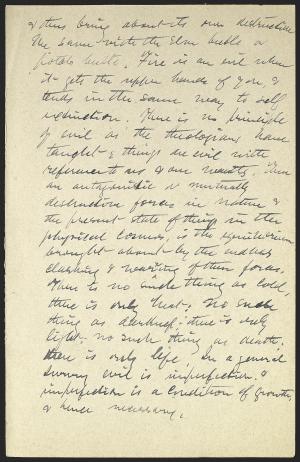 & thus bring about its own destruction
The same with the Elm beetle or
potato beetle. Fire is an evil when
it gets the upper hands of you, &
tends in the same way to self
extinction. There is no principle
of evil as the theologians have
taught & things are evil with
reference to us & our wants. There
are antagonistic & mutually
destructive forces in nature &
the present state of things in the
physical cosmos, is the equilibrium
brought about by the endless
clashing & warring of these forces.
There is no such thing as cold,
there is only heat; no such
thing as darkness; there is only
light; no such thing as death;
there is only life. In a general
survey evil is imperfection, &
imperfection is a condition of growth,
& hence necessary.